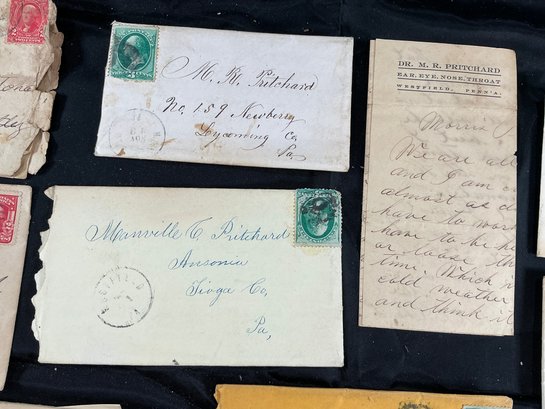 M. R. Pritchard
No. 159 Newberry
Lycoming Co.
Pa.
Manville C. Pritchard
Ansonia
Tioga Co,
Pa,
DR. M. R. PRITCHARD
EAR, EYE, NOSE, THROAT
WESTFIELD, PENN'A.
Morris
We are all
and I am
almost as
have to wor
have to be he
or loose th
time. Which
cold weather
and think it